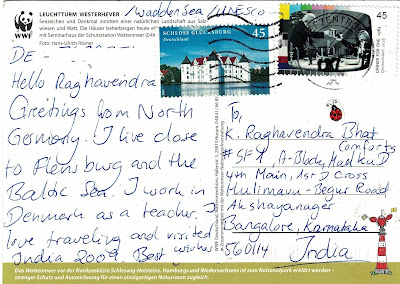 LEUCHTTURM WESTERHEVER
Seezeichen und Denkmal inmitten einer natürlichen Landschaft aus Salz-
wiesen und Watt. Die Häuser beherbergen heute ein
mit Seminarhaus der Schutzstation Wattenmeer
Foto: Hans-Ulrich Rösner
WWF
Waddensea / UNESCO
SCHLOSS GLÜCKSBURG
Deutschland
45
45
DE -
Hello Raghavendra
Greetings from North
Germany. I live close
to Flensburg and the
Baltic Sea. I work in
Denmark as a teacher. I
love traveling and visited
India 2009. Best wishes
To,
K. Raghavendra Bhat
#SF1, A-Block, Madhu D Comforts
4th Main, 1st D Cross
Hulimavu-Begur Road
Akshayanager
Bangalore, Karnataka
560114 India
Das Wattenmeer vor der Nordseeküste Schleswig-Holsteins, Hamburgs und Niedersachsens ist zum Nationalpark erklärt worden –
strenger Schutz und Auszeichnung für einen einzigartigen Naturraum zugleich.